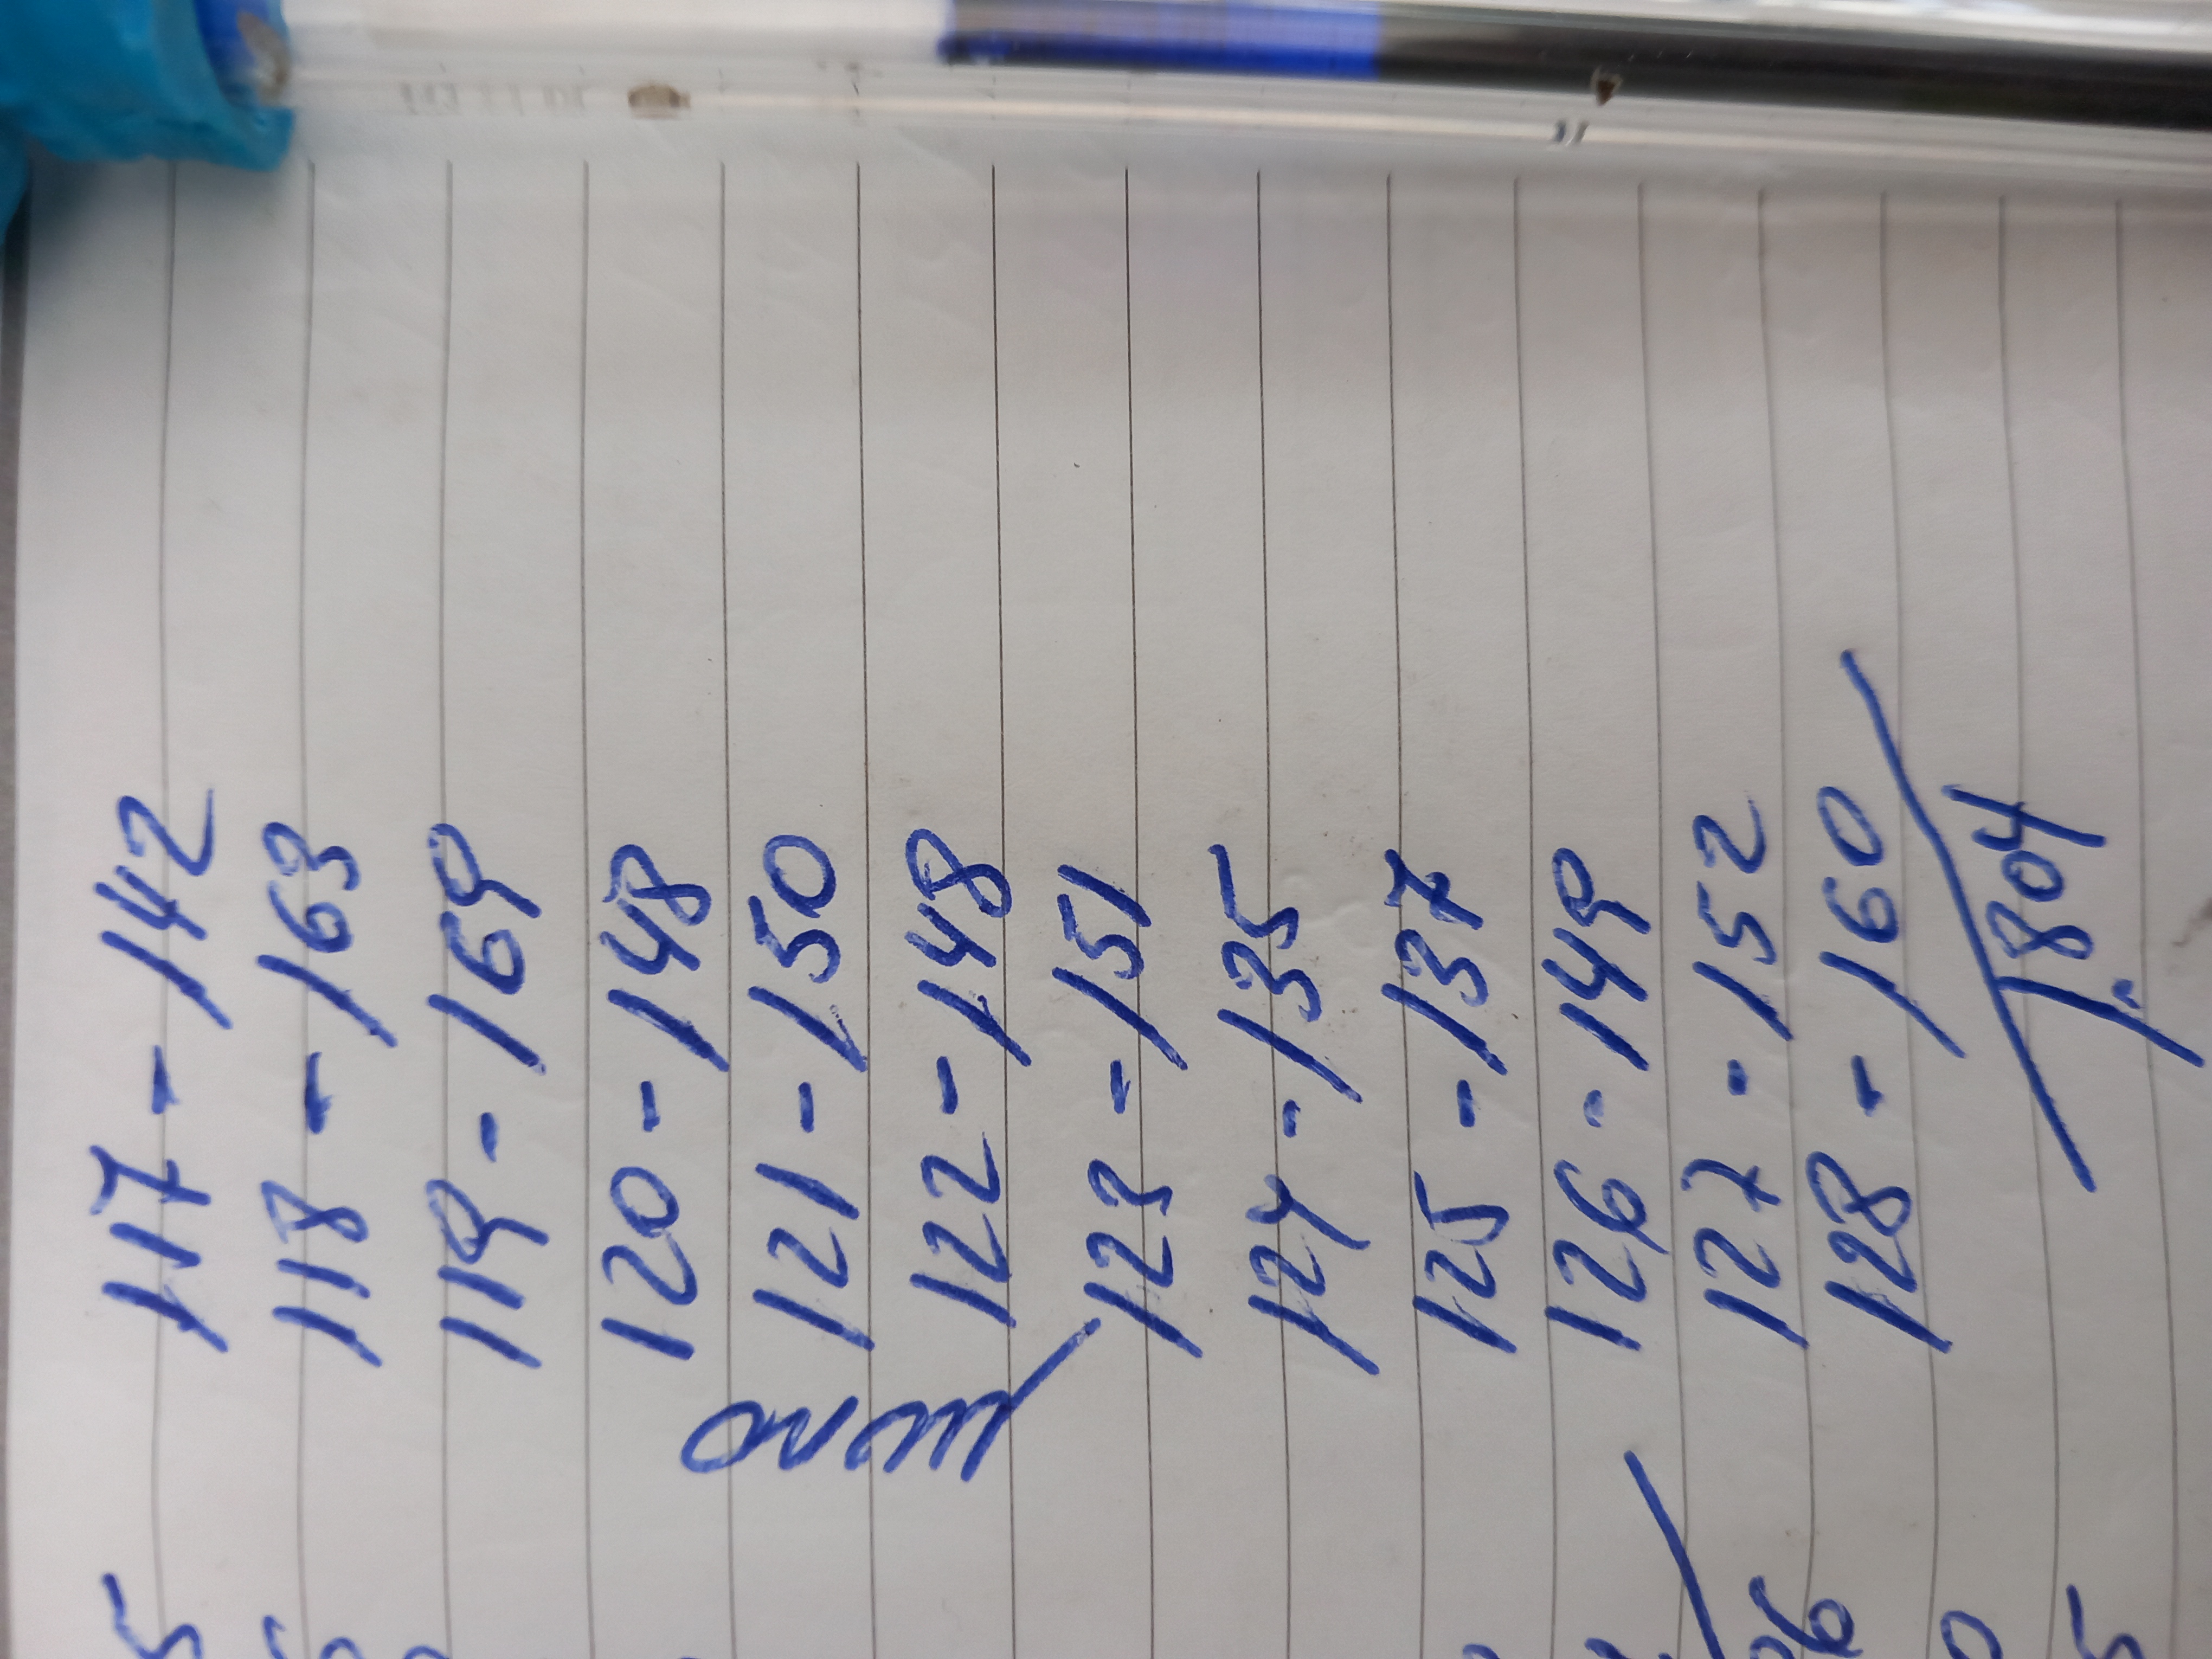 117 - 142
118 - 163
119 - 169
120 - 148
121 - 150
122 - 148
123 - 151
124 - 135
125 - 137
126 - 149
127 - 152
128 - 160
1.804